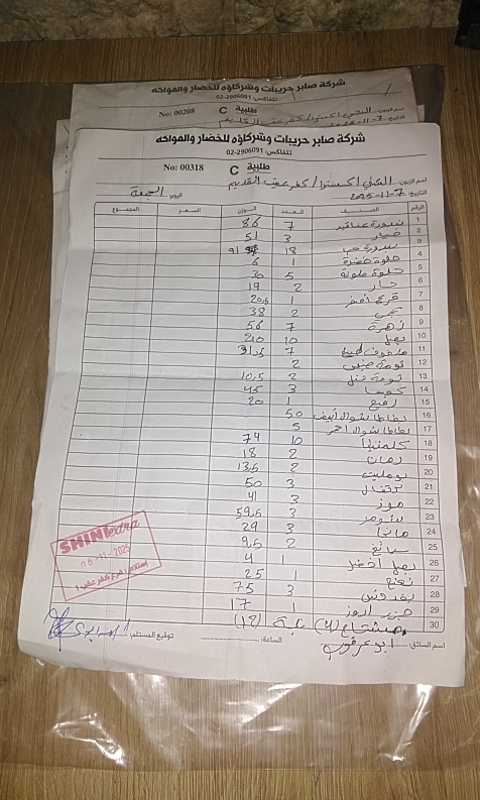 شركة صابر حريبات وشركاؤه للخضار والفواكه
تلفاكس: 02-2906091
طلبية C No: 00208
شركة صابر حريبات وشركاؤه للخضار والفواكه
تلفاكس: 02-2906091
طلبية C No: 00318
اسم الزبون: الشني اكسترا / كفر عقب القديم
التاريخ: 2025-11-7 اليوم: الجمعة
الرقم الصنف العدد الوزن السعر المجموع
1 بندورة عناقيد 7 86
2 خيار 3 51
3 بندورة حب 18 91
4 حلوة خضرة 1 6
5 حلوة ملونة 5 30
6 حار 2 19
7 قرع أخضر 1 20.5
8 2 38
9 زهرة 7 56
10 بصل 10 210
11 ملفوف 7
12 تومة 2
13 تومة 2 10.5
14 كوسا 3 45
15 1 20
16 بطاطا شوال ابيض 50
17 بطاطا شوال احمر 5
18 كلمنتينا 10 74
19 رمان 2 18
20 بومليت 2 13.5
21 برتقال 3 50
22 موز 3 41
23 3 59.5
24 مانجا 3 29
25 سبانخ 2 9.5
26 بصل أخضر 1 4
27 نعنع 1 25
28 بقدونس 3 75
29 جزر 1 17
30 (4) (12)
SHINI extra
06-11-2025
استلام / فرع كفر عقب
اسم السائق: ابو عرقوب الساعة: توقيع المستلم: